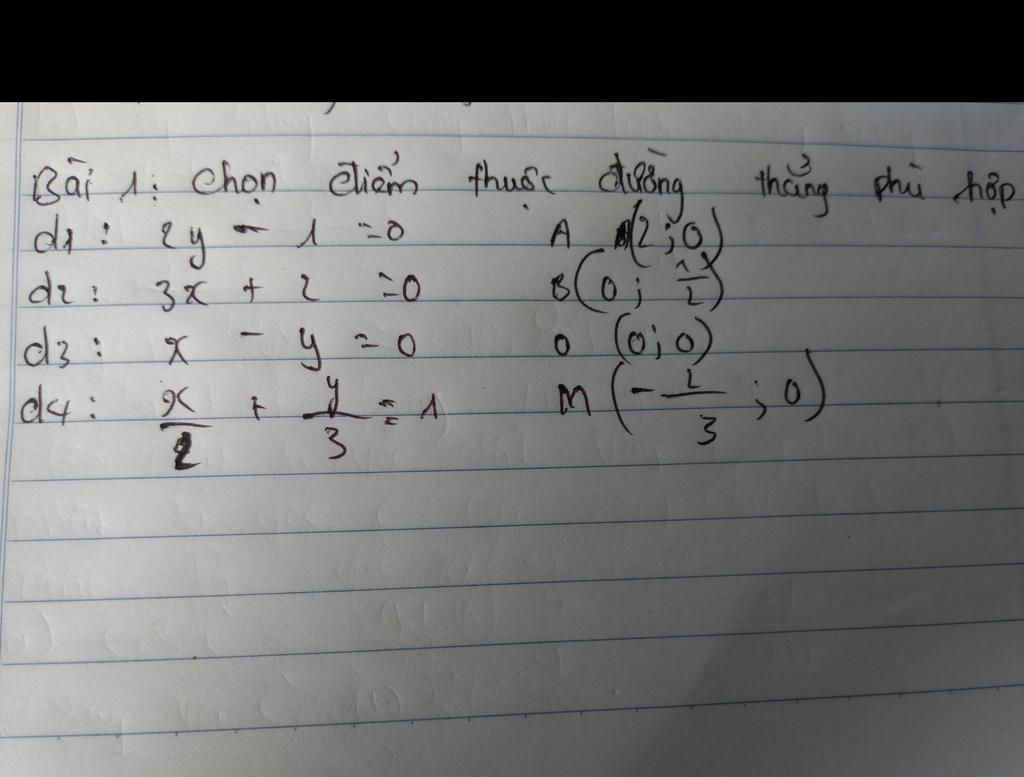 Bài 1: Chọn điểm thuộc đường thẳng phù hợp
d1: 2y - 1 = 0 A (2; 0)
d2: 3x + 2 = 0 B (0; 1/2)
d3: x - y = 0 O (0; 0)
d4: x/2 + y/3 = 1 M (-2/3; 0)